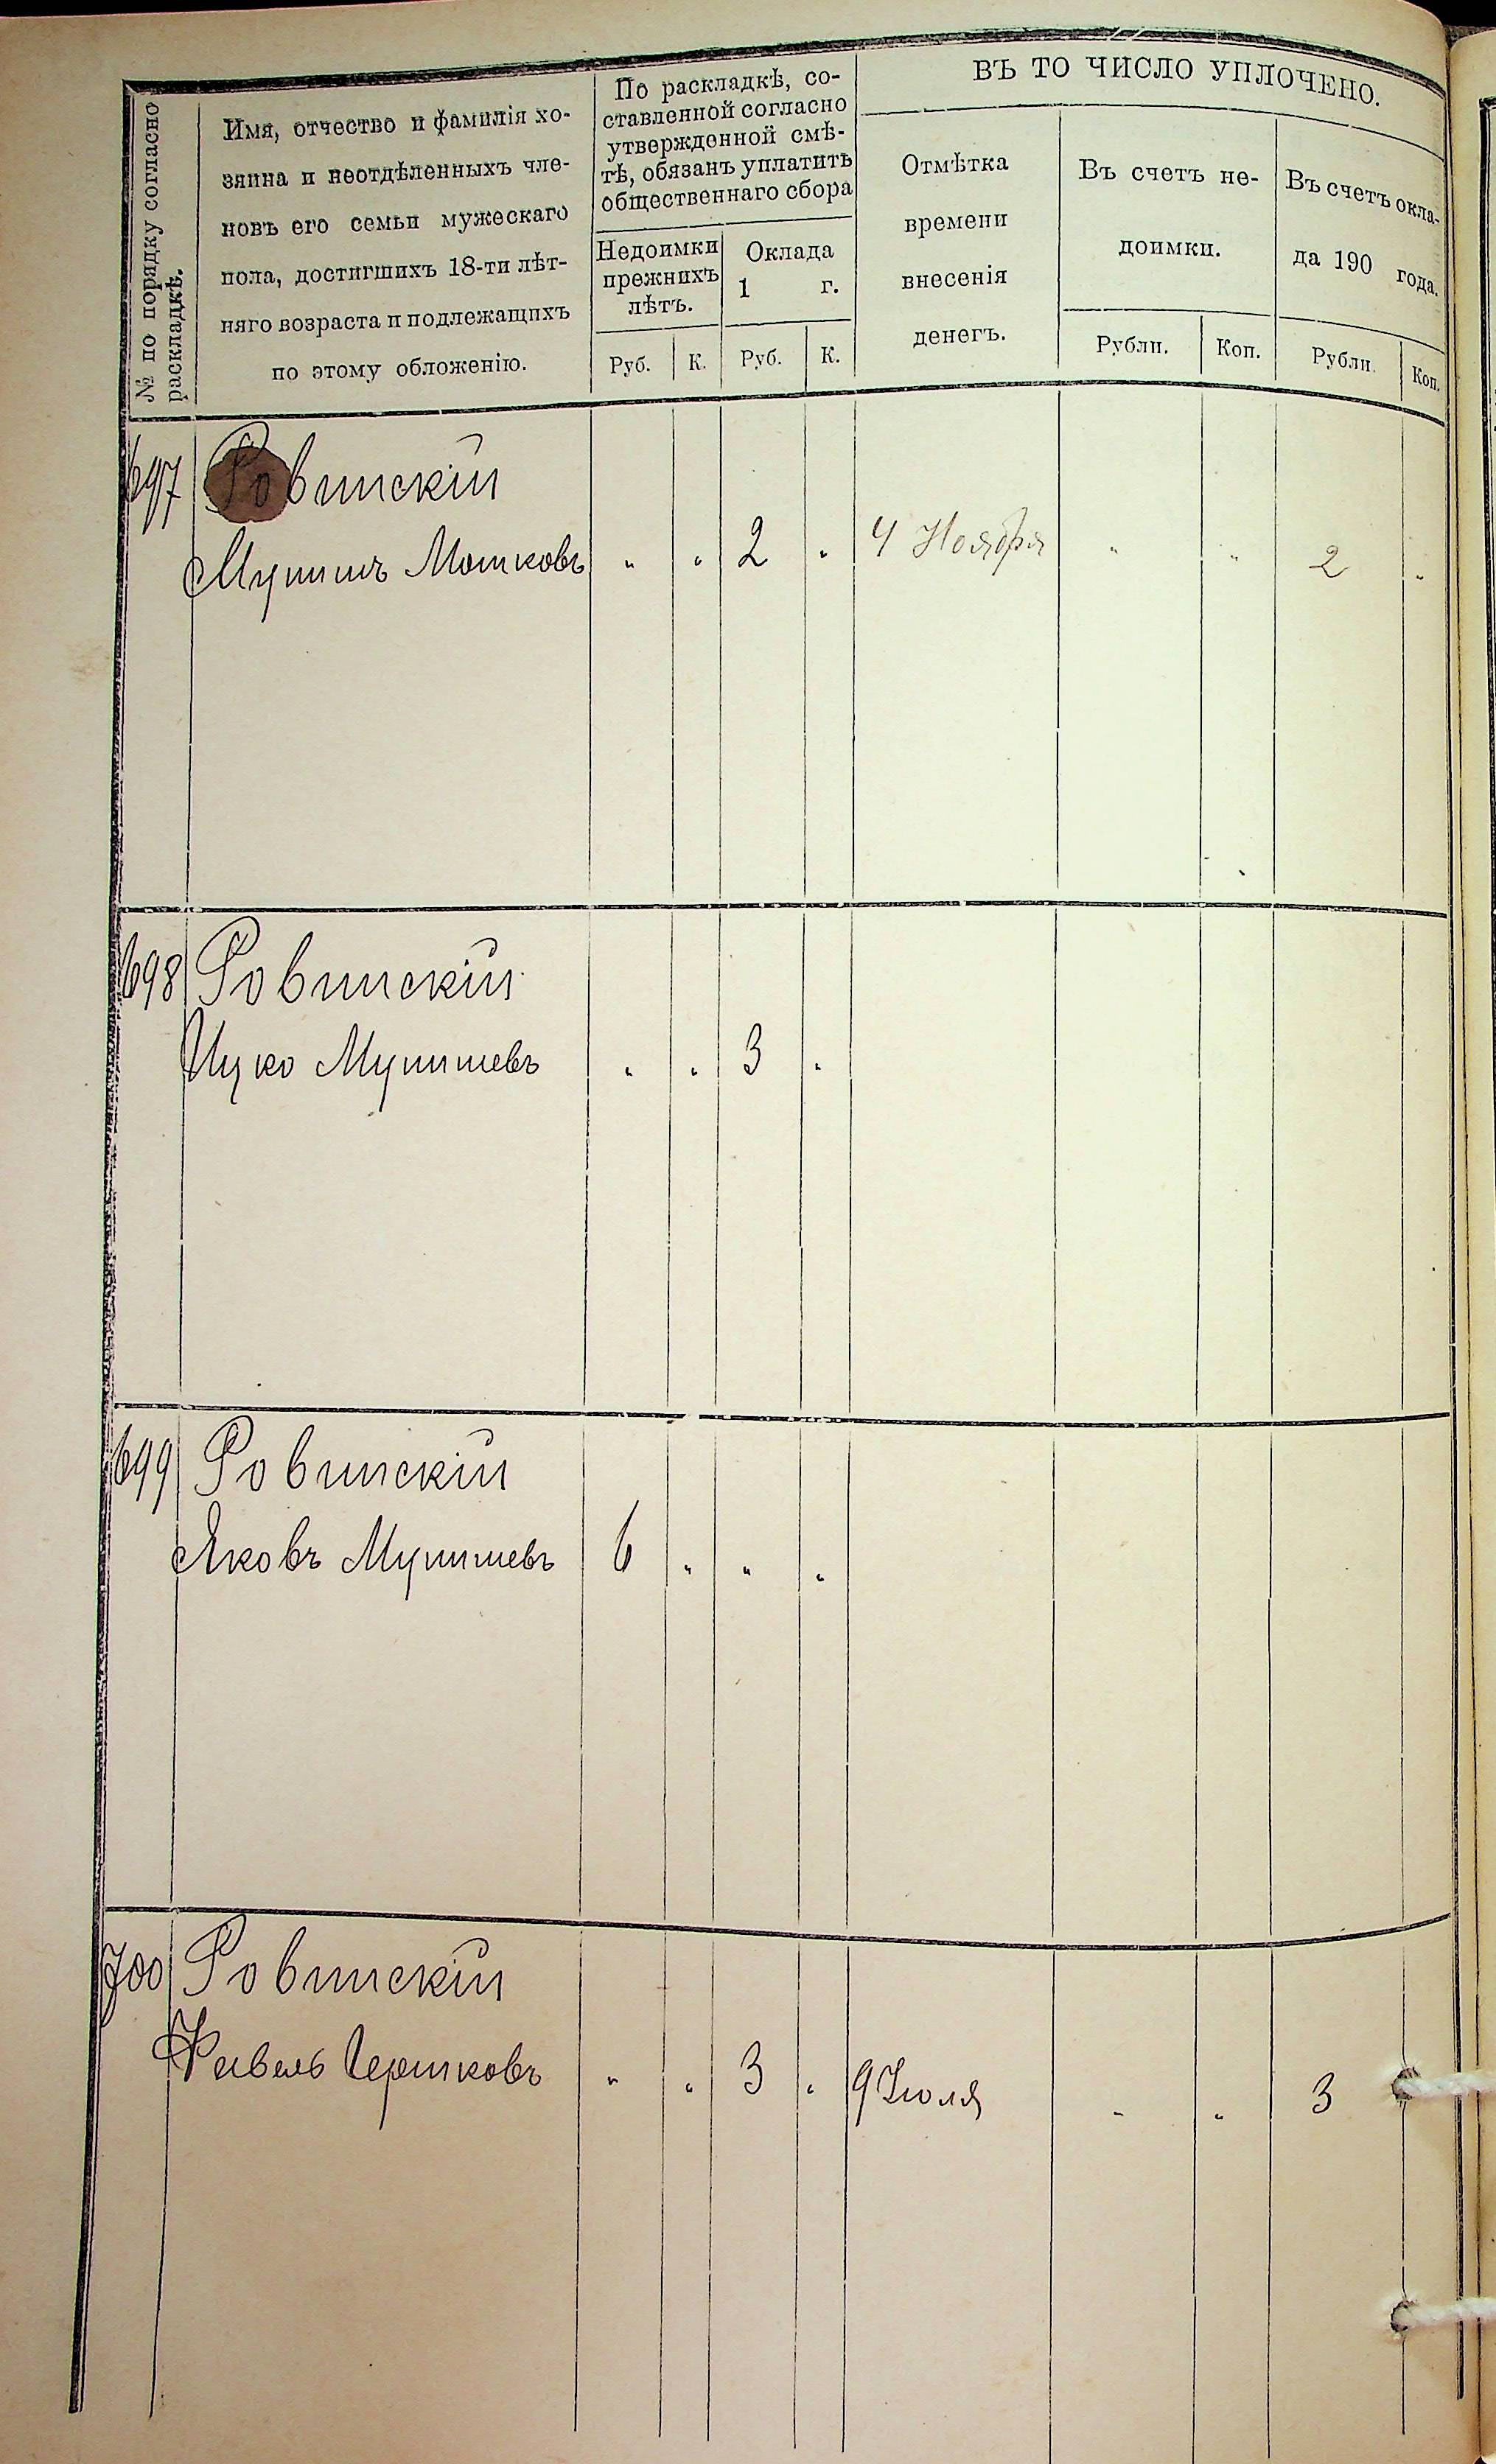 № по порядку согласно
раскладкѣ.
Имя, отчество и фамилія хо-
зяина и неотдѣленныхъ чле-
новъ его семьи мужескаго
пола, достигшихъ 18-ти лѣт-
няго возраста и подлежащихъ
по этому обложенію.
По раскладкѣ, со-
ставленной согласно
утвержденной смѣ-
тѣ, обязанъ уплатить
общественнаго сбора
Недоимки
прежнихъ
лѣтъ.
Оклада
1 г.
Руб. К. Руб. К.
ВЪ ТО ЧИСЛО УПЛОЧЕНО.
Отмѣтка
времени
внесенія
денегъ.
Въ счетъ не-
доимки.
Рубли. Коп.
Въ счетъ окла-
да 190 года.
Рубли. Коп.
697 Ровинскій
Мунишъ Мошковъ „ „ 2 „ 4 Ноября „ „ 2 „
698 Ровинскій
Ицко Мунишевъ „ „ 3 „
699 Ровинскій
Яковъ Мунишевъ 6 „ „ „
700 Ровинскій
Фивель Гершковъ „ „ 3 „ 9 Іюля „ „ 3